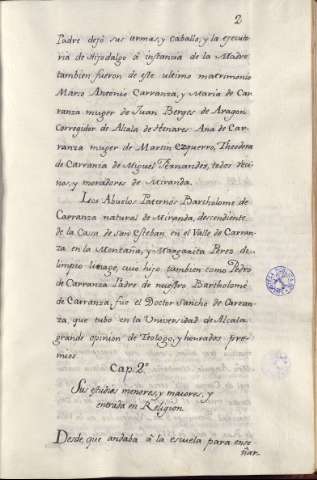 2
Padre dejó sus armas, y caballo, y la ejecuto
ria de Hijodalgo á instancia de la Madre
tambien fueron de este ultimo matrimonio
Marco Antonio Carranza, y Maria de Car
ranza muger de Juan Berges de Aragon
Corregidor de Alcala de Henares Ana de Car
ranza muger de Martin Ezquerro, Theodora
de Carranza de Miguel Fernandez, todos veci
nos, y moradores de Miranda.
Los Abuelos Paternos Bartholome de
Carranza natural de Miranda, descendiente
de la Casa de San Esteban en el Valle de Carran
za en la Montaña, y Margarita Perez de
limpio linage, cuio hijo tambien como Pedro
de Carranza Padre de nuestro Bartholomé
de Carranza, fue el Doctor Sancho de Carran
za, que tubo en la Universidad de Alcala
grande opinion de Teologo, y honrados pre-
mios
Cap. 2º
Sus estudios menores, y maiores, y
entrada en Religion.
Desde que andaba á la escuela para ense
ñar.